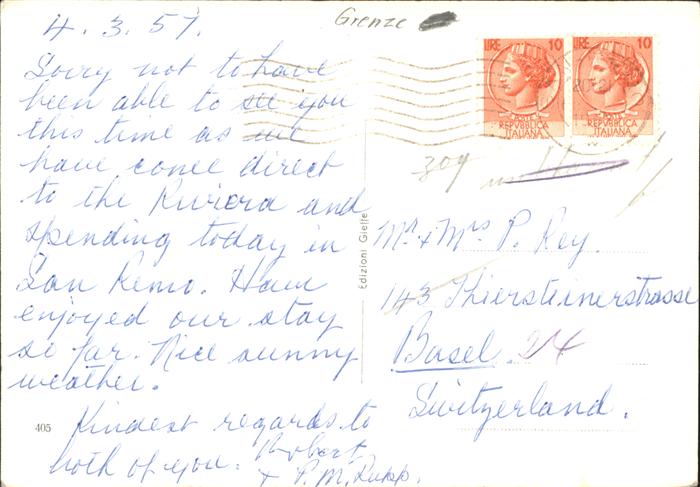 4. 3. 57.
Grenze
Sorry not to have
been able to see you
this time as we
have come direct
to the Riviera and
spending today in
San Remo. Have
enjoyed our stay
so far. Nice sunny
weather.
Kindest regards to
both of you. Robert
+ P.M. Rupp.
405
Edizioni Gieffe
LIRE 10
REPVBBLICA
ITALIANA
LIRE 10
REPVBBLICA
ITALIANA
309
Mr + Mrs P. Rey.
143 Thiersteinerstrasse
Basel. 24
Switzerland.